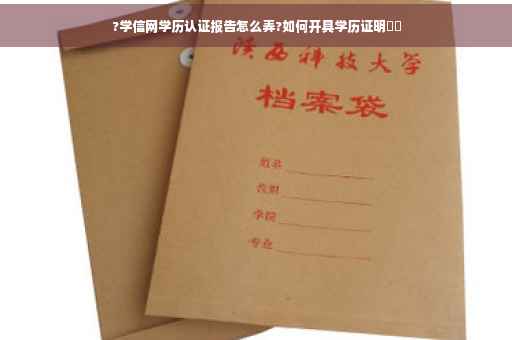 ?学信网学历认证报告怎么弄?如何开具学历证明
陕西科技大学
档案袋
姓名
性别
学院
专业